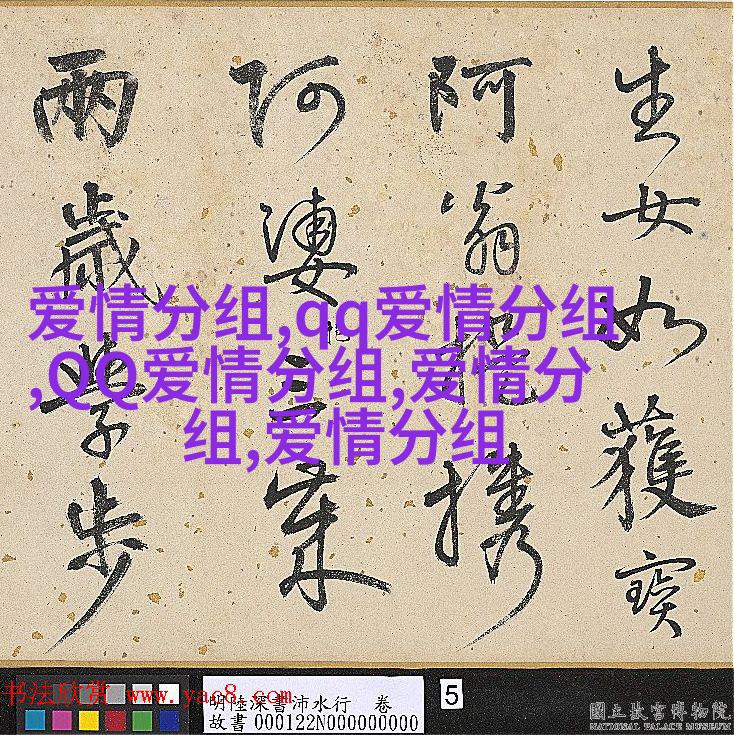 生女如獲寶
阿翁携
阿婆
兩歲學步
爱情分组,qq爱情分组
,QQ爱情分组,爱情分
组,爱情分组
书法欣赏 www.yac8.com
明陸深書沛水行 卷
故書000122N000000000
5
國立故宮博物院
NATIONAL PALACE MUSEUM